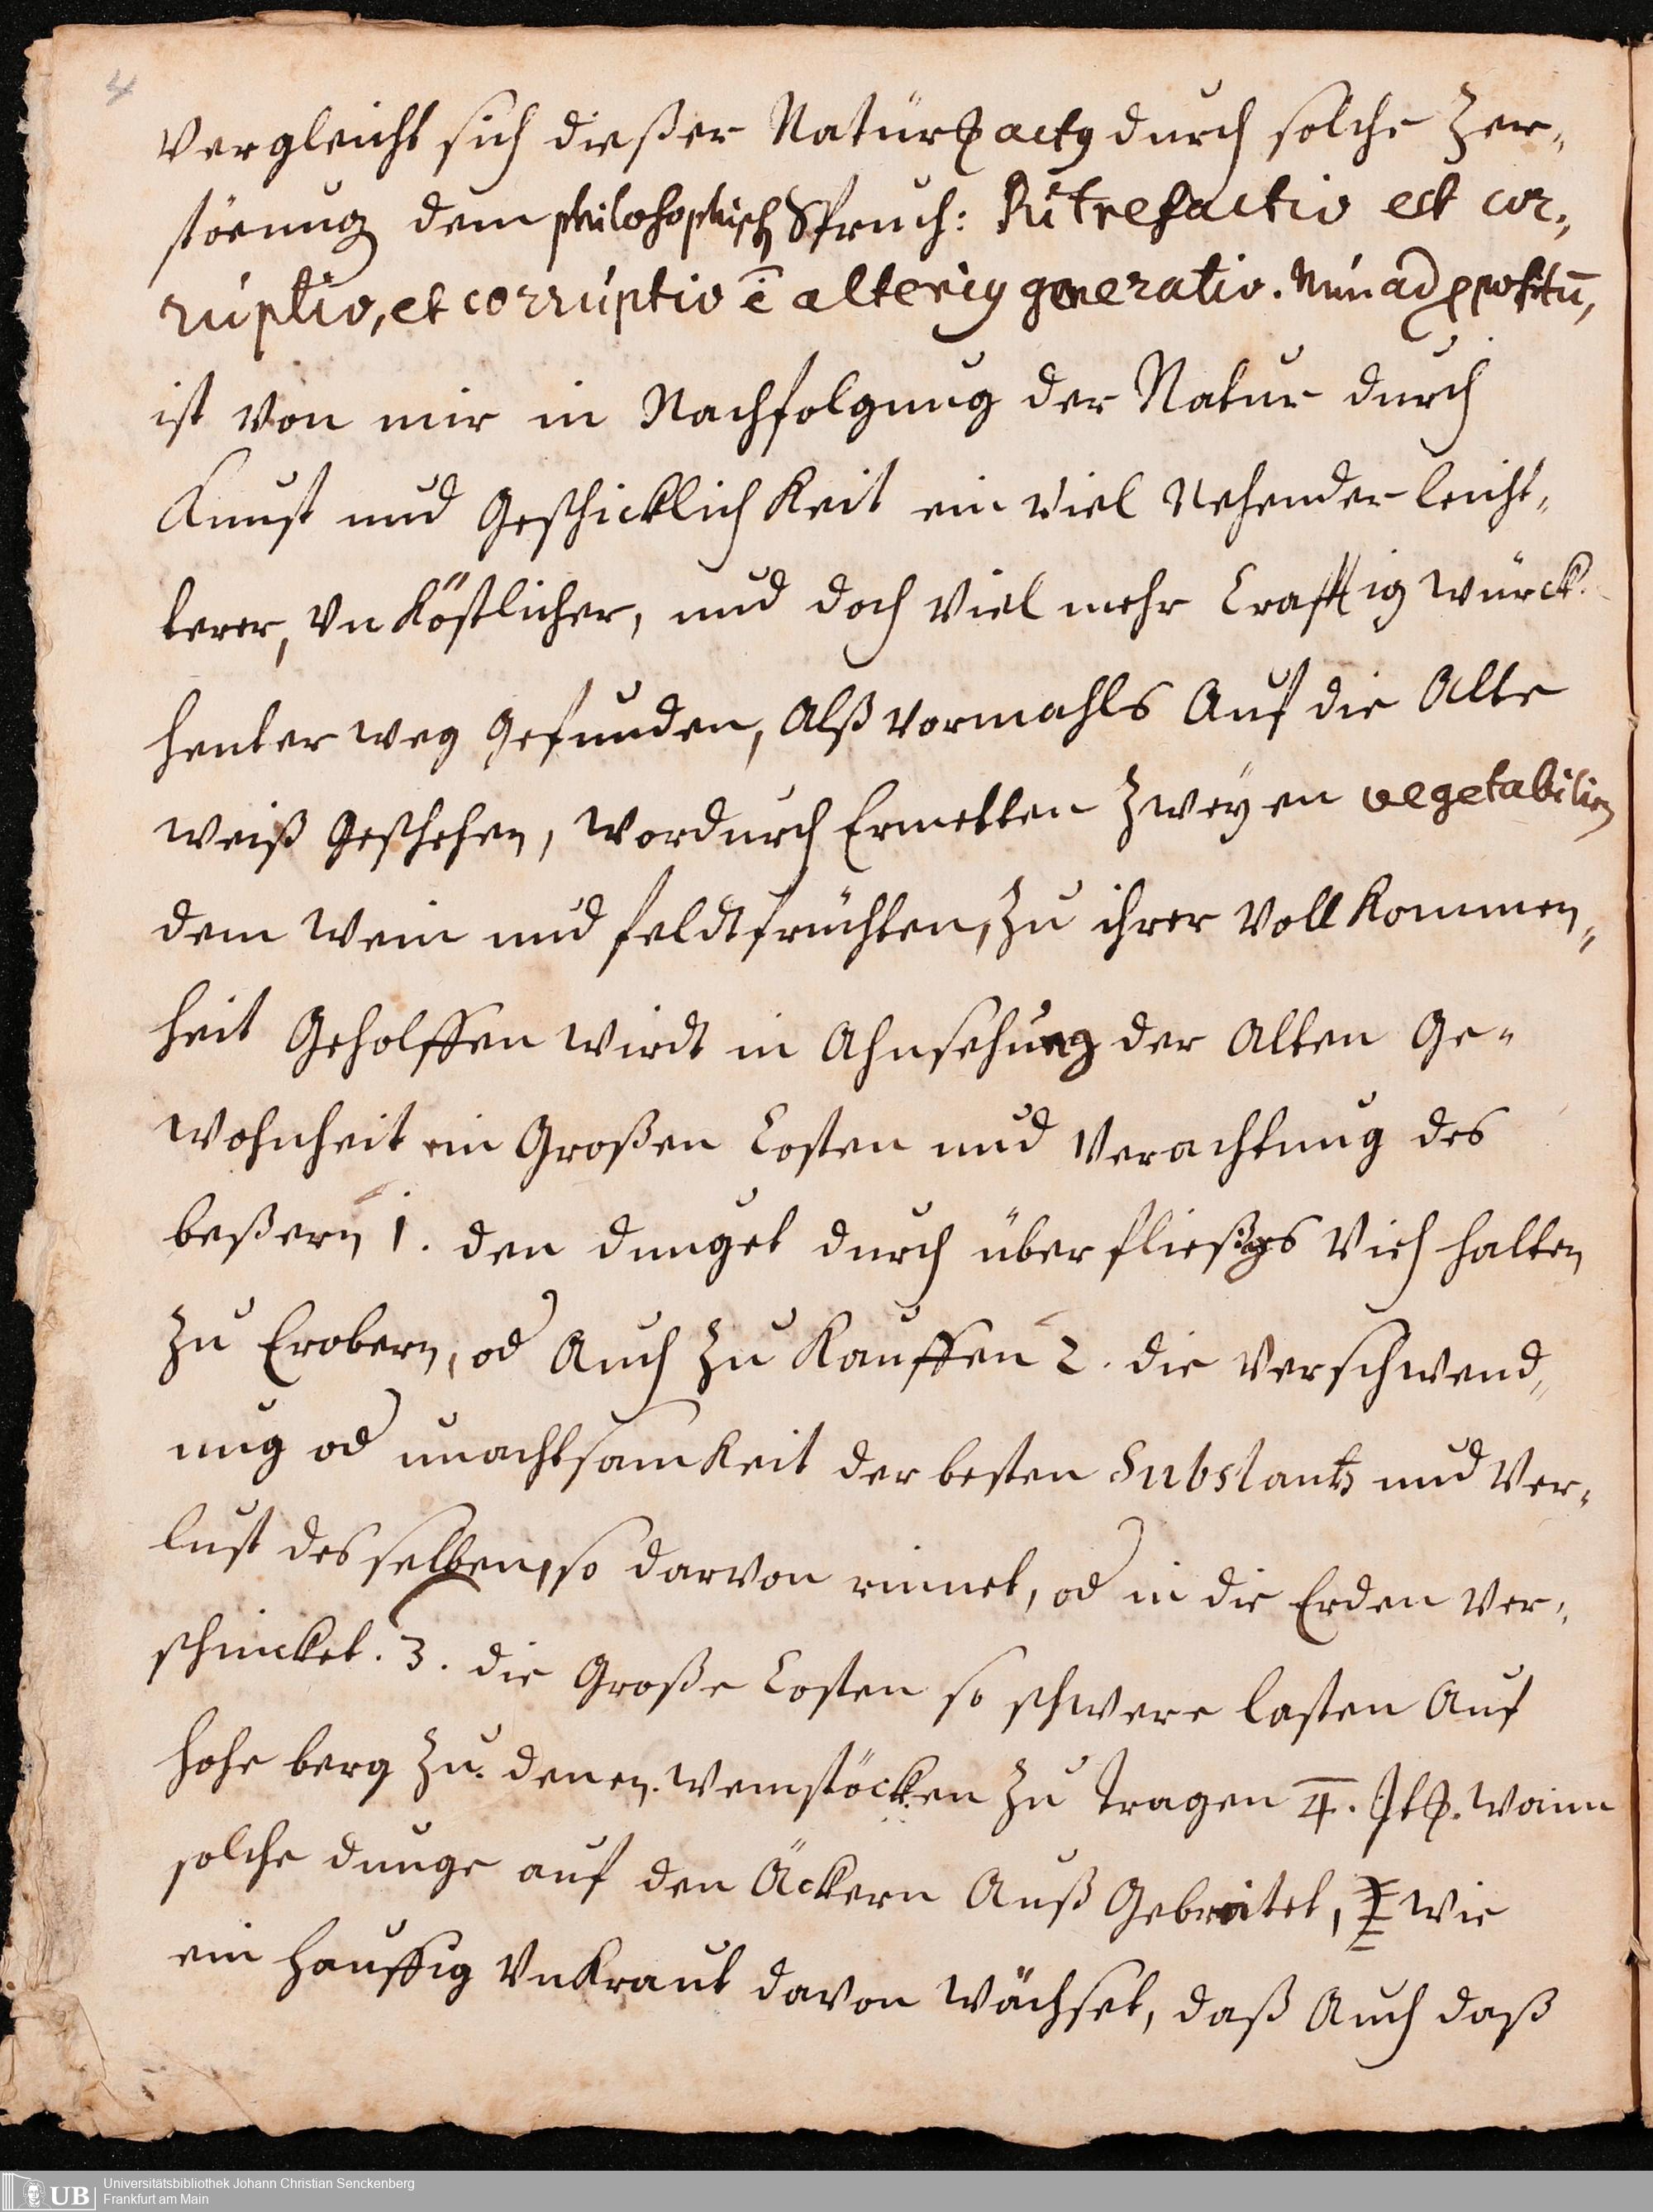 4
Vergleicht sich dießer Natur actꝯ durch solche Zer„
störung dem philosophisch Spruch: Putrefactio est cor„
ruptio, et corruptio ē alteriꝯ generatio. Nun ad ꝓpositū,
ist von mir in Nachfolgung der Natur durch
Kunst und Geschicklichkeit ein viel nehender leicht„
terer, Unköstlicher, und doch viel mehr Crafftig würck„
henter weg gefunden, Alß vormahls Auf die Alte
weiß Geschehen, wordurch Ermelten Zweyen vegetabilien
dem Wein und feldtfrüchten, Zu ihrer Vollkommen„
heit Geholffen wirdt in Ahnsehung der Alten Ge„
wohnheit ein Großen Costen und Verachtung des
beßern 1. den dunget durch überfließigs Vieh halten
Zu Erobern, od Auch Zu Kauffen 2. die Verschwend„
ung od unachtsamkeit der besten Substantz und Ver„
lust desselben, so darvon rinnet, od in die Erden Ver„
schincket. 3. die Große Costen so schwere lasten Auf
hohe berg Zu denen Weinstöcken Zu Tragen 4. Wann
solche dunge auf den Äckern Auß Gebreitet, wie
ein Hauffig Unkraut davon Wächset, daß Auch daß
Universitätsbibliothek Johann Christian Senckenberg
Frankfurt am Main
UB